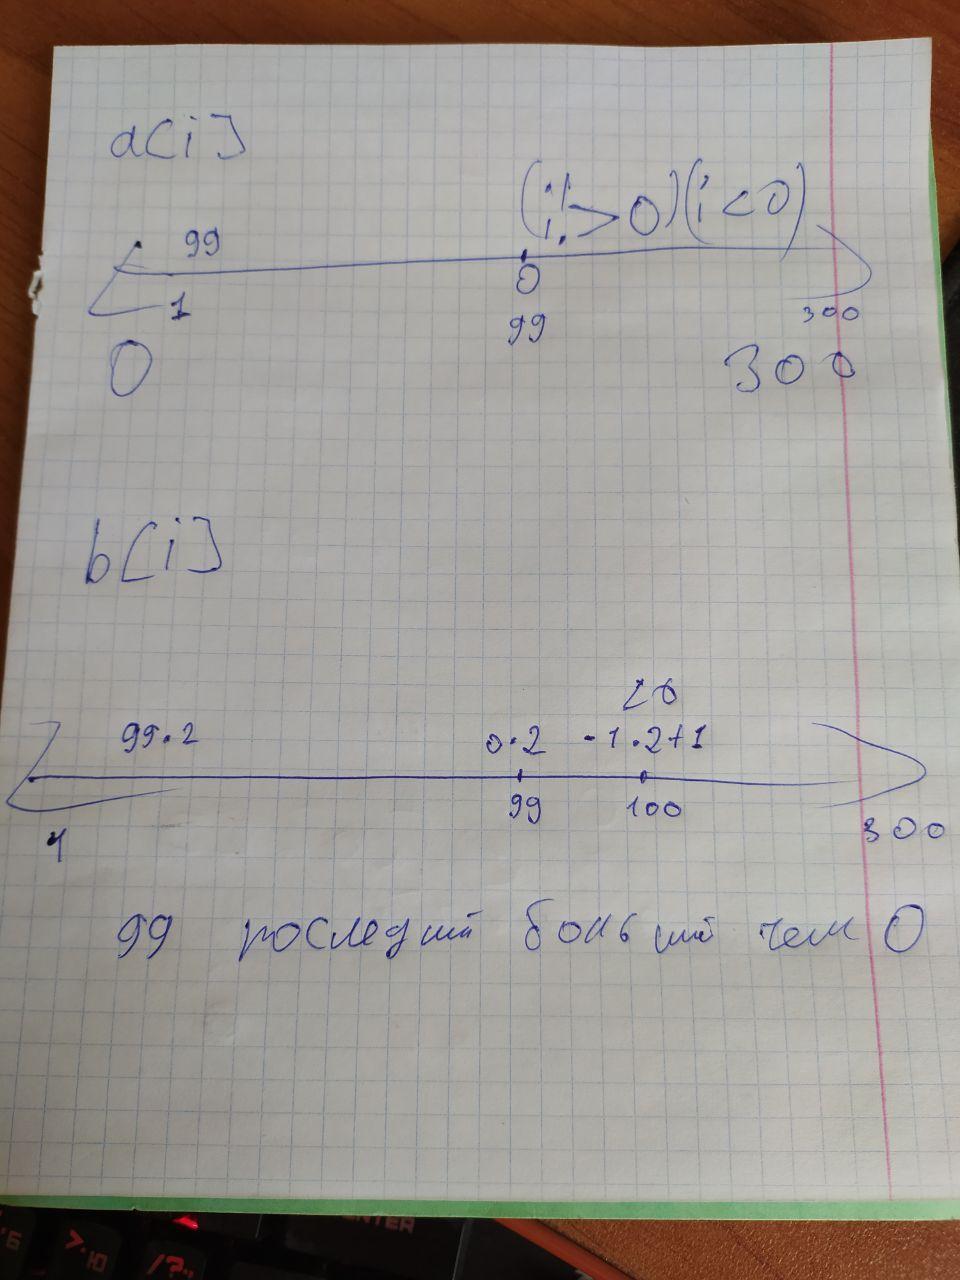 a[i]
(i!>0)(i<0)
99
0
1
99
300
0
300
b[i]
<0
99.2
0.2
-1.2+1
99
100
1
300
99 последний больший чем 0
ENTER
Б
>.
Ю
/?.